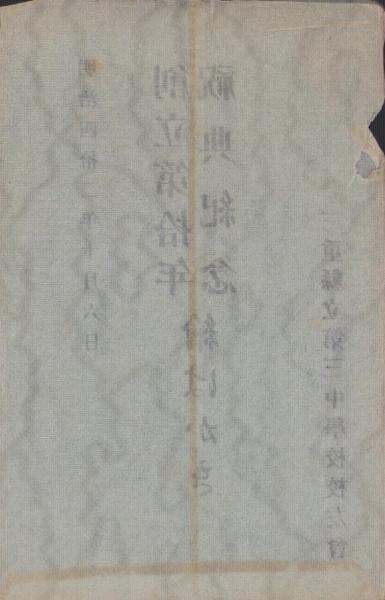 明治四拾二年月六日
創立第拾年
祝典紀念繪はがき
重縣立第三中學校校友會